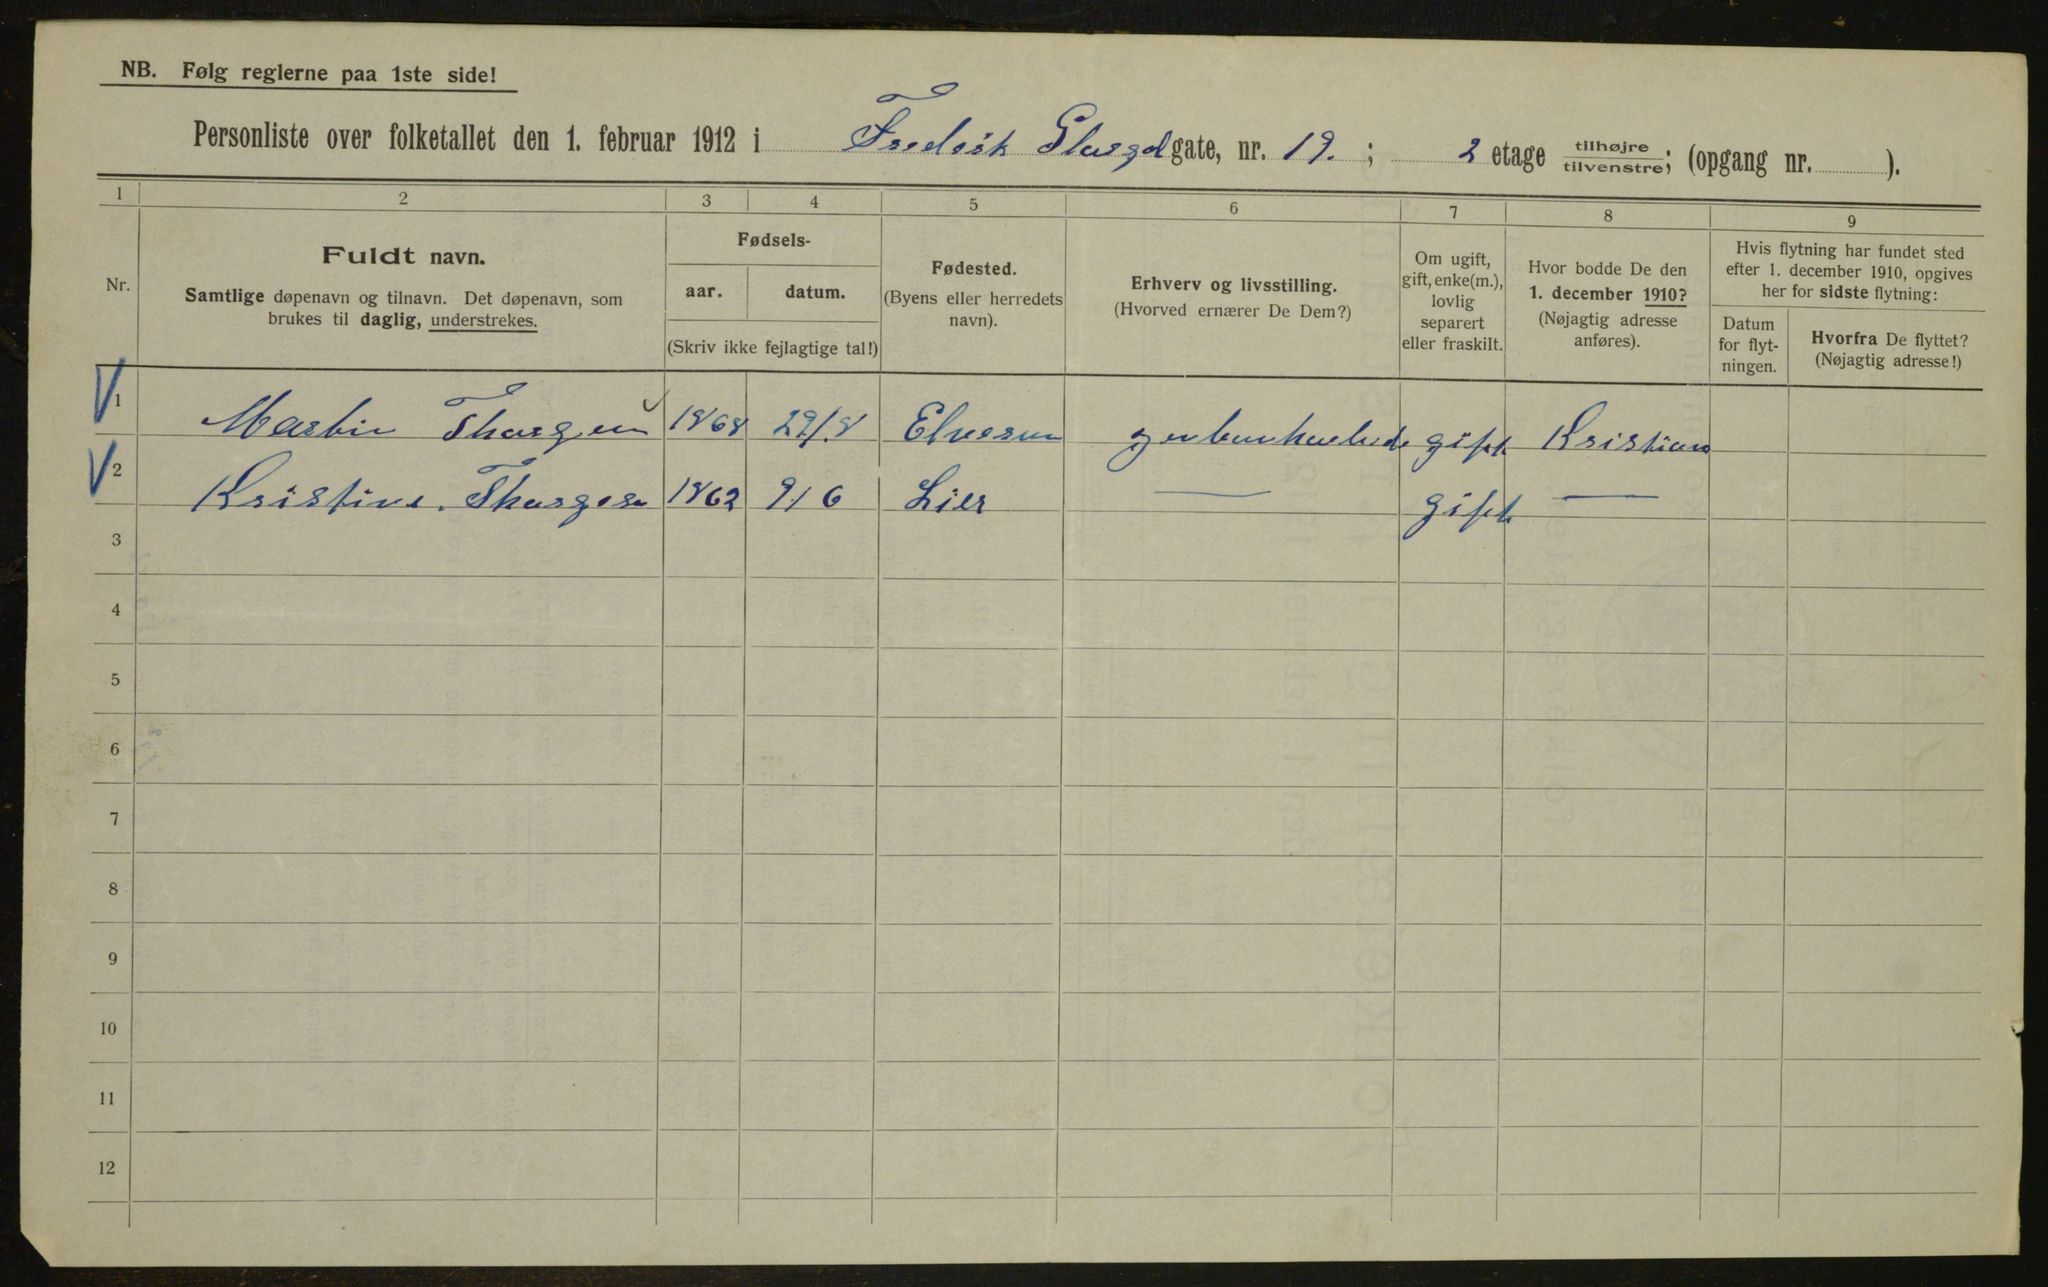 NB. Følg reglerne paa 1ste side!
Personliste over folketallet den 1. februar 1912 i Frederik gate, nr. 19. ; 2 etage tilhøjre/tilvenstre; (opgang nr. ).
1 2 3 4 5 6 7 8 9
Nr.
Fuldt navn.
Samtlige døpenavn og tilnavn. Det døpenavn, som
brukes til daglig, understrekes.
Fødsels-
aar. datum.
(Skriv ikke fejlagtige tal!)
Fødested.
(Byens eller herredets
navn).
Erhverv og livsstilling.
(Hvorved ernærer De Dem?)
Om ugift,
gift, enke(m.),
lovlig
separert
eller fraskilt.
Hvor bodde De den
1. december 1910?
(Nøjagtig adresse
anføres).
Hvis flytning har fundet sted
efter 1. december 1910, opgives
her for sidste flytning:
Datum
for flyt-
ningen.
Hvorfra De flyttet?
(Nøjagtig adresse!)
1 Martin Thorgesen 1868 29/8 Elverum gift Kristian
2 Kristine Thorgesen 1862 9/6 Lier — gift —
3
4
5
6
7
8
9
10
11
12